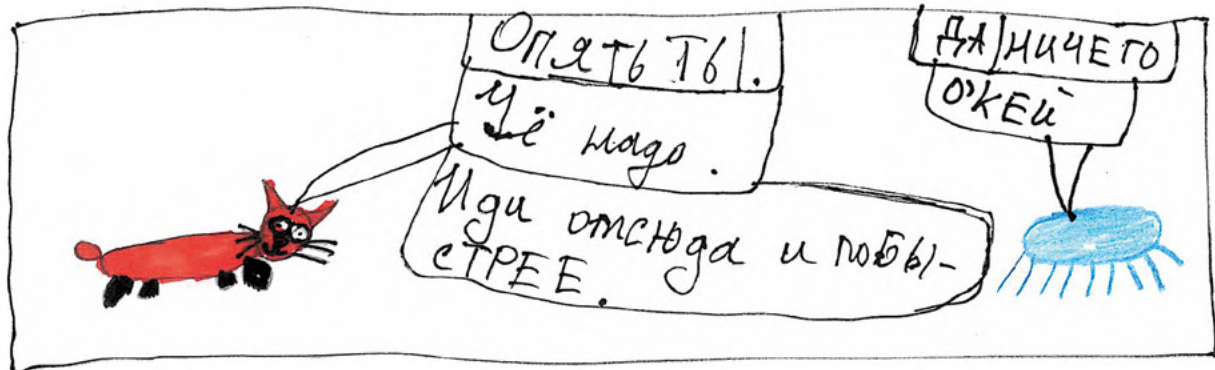 Опять ты.
Чё надо.
Иди отсюда и побы-
стрее.
ДА НИЧЕГО
О'КЕЙ